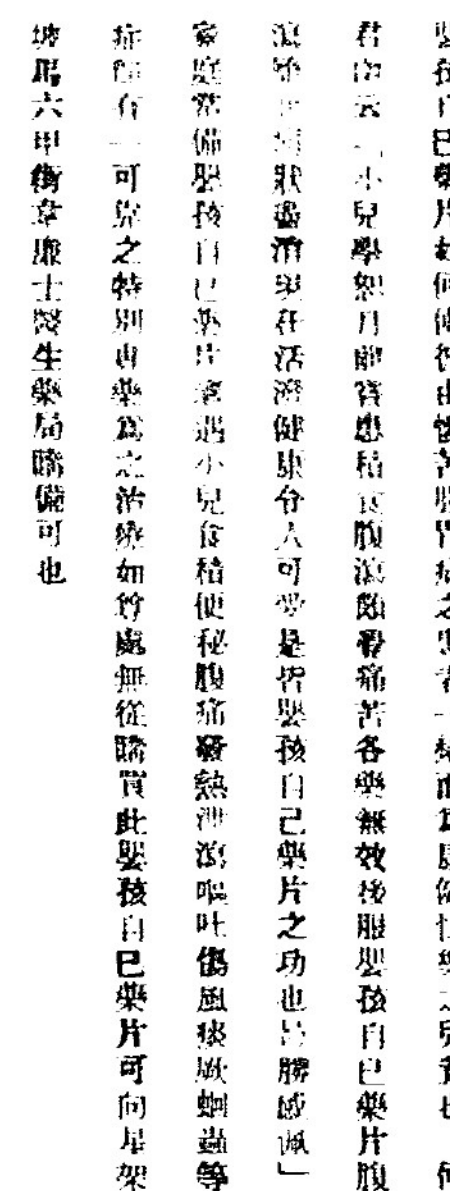 嬰孩自己藥片如何使彼由慘苦腸胃病之患者一變而為康健快樂之兒童也　何
君函云「小兒學恕月前曾患積食腹瀉頗爲痛苦各藥無效後服嬰孩自己藥片腹
瀉除正病狀盡消現在活潑健康令人可愛是皆嬰孩自己藥片之功也曷勝感佩」
家庭常備嬰孩自己藥片凡遇小兒食積便秘腹痛發熱泄瀉嘔吐傷風痰厥蛔蟲等
症即有一可靠之特別專藥爲之治療如貴處無從購買此嬰孩自己藥片可向星架
坡馬六甲街韋廉士醫生藥局購備可也